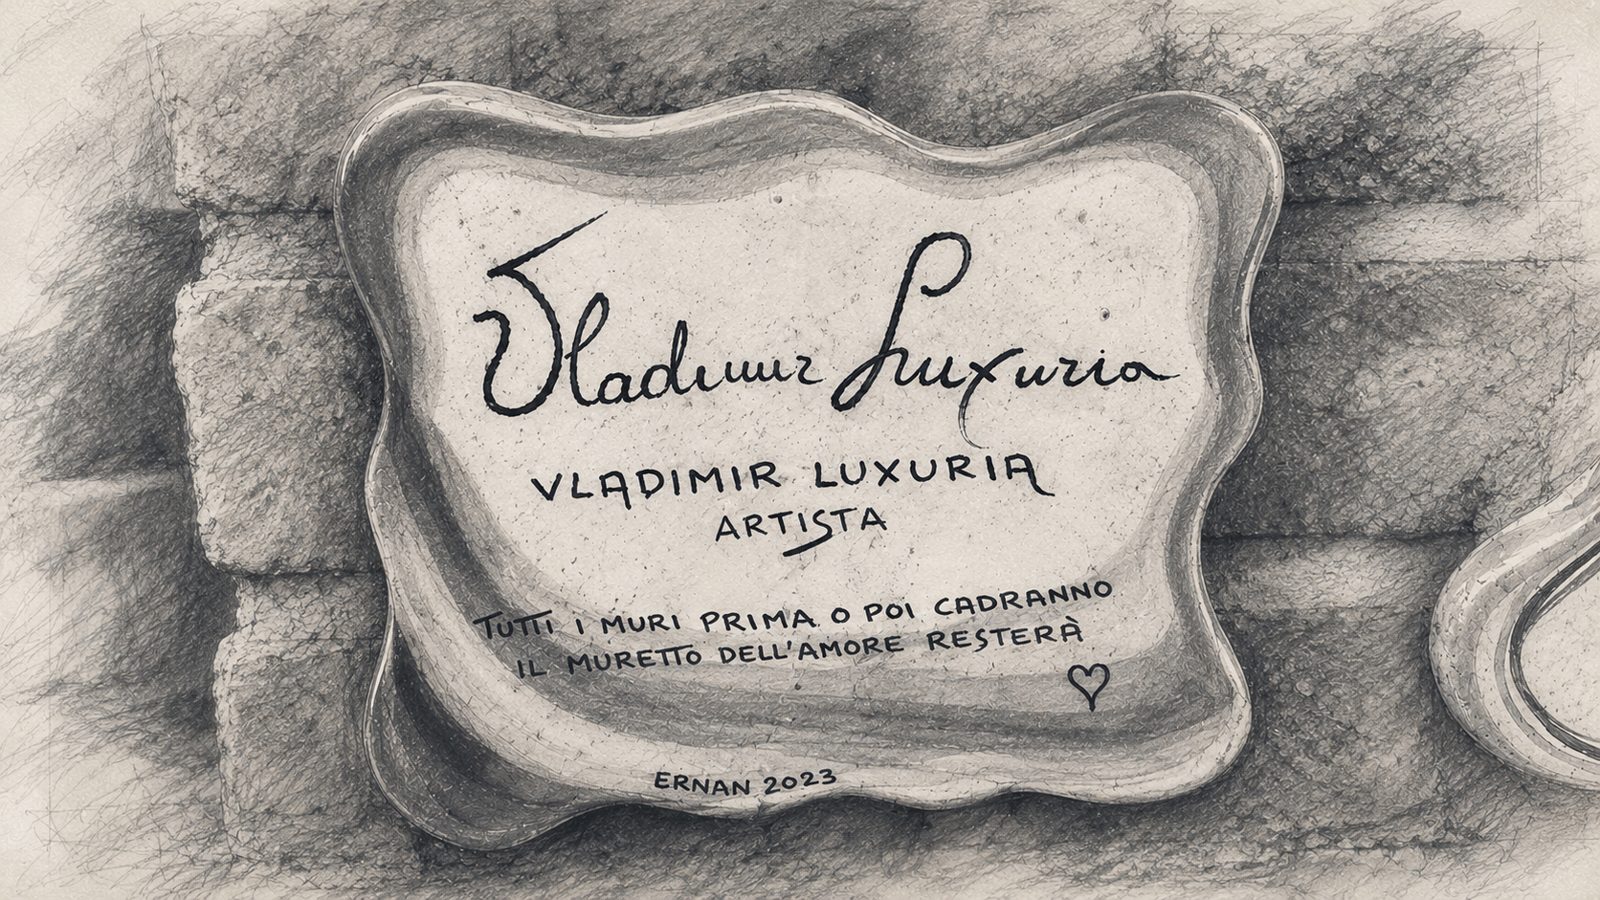 Vladimir Luxuria
VLADIMIR LUXURIA
ARTISTA
TUTTI I MURI PRIMA O POI CADRANNO
IL MURETTO DELL'AMORE RESTERÀ
ERNAN 2023